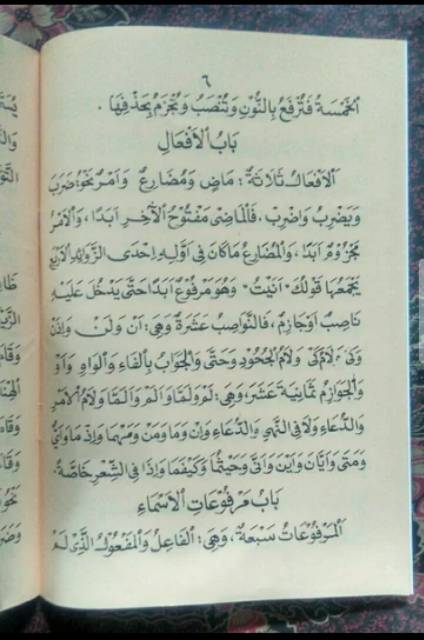 ٦
الْخَمْسَةُ فَتُرْفَعُ بِالنُّوْنِ وَتُنْصَبُ وَتُجْزَمُ بِحَذْفِهَا .
بَابُ الْاَفْعَالِ
اَلْاَفْعَالُ ثَلَاثَةٌ : مَاضٍ وَمُضَارِعٌ وَاَمْرٌ نَحْوُ ضَرَبَ
وَيَضْرِبُ وَاضْرِبْ . فَالْمَاضِى مَفْتُوْحُ الْآخِرِ اَبَدًا ، وَالْاَمْرُ
مَجْزُوْمٌ اَبَدًا ، وَالْمُضَارِعُ مَاكَانَ فِى اَوَّلِهِ اِحْدَى الزَّوَائِدِ الْاَرْبَعِ
يَجْمَعُهَا قَوْلُكَ "اَنَيْتُ" وَهُوَ مَرْفُوْعٌ اَبَدًا حَتَّى يَدْخُلَ عَلَيْهِ
نَاصِبٌ اَوْجَازِمٌ ، فَالنَّوَاصِبُ عَشَرَةٌ وَهِىَ : اَنْ وَلَنْ وَاِذَنْ
وَكَىْ وَلَامُ كَىْ وَلَامُ الْجُحُوْدِ وَحَتَّى وَالْجَوَابُ بِالْفَاءِ وَالْوَاوِ وَاَوْ
وَالْجَوَازِمُ ثَمَانِيَةَ عَشَرَ ، وَهِىَ : لَمْ وَلَمَّا وَاَلَمْ وَاَلَمَّا وَلَامُ الْاَمْرِ
وَالدُّعَاءِ وَلَا فِى النَّهْىِ وَالدُّعَاءِ وَاِنْ وَمَا وَمَنْ وَمَهْمَا وَاِذْ مَا وَاَيُّ
وَمَتَى وَاَيَّانَ وَاَيْنَ وَاَنَّى وَحَيْثُمَا وَكَيْفَمَا وَاِذَا فِى الشِّعْرِ خَاصَّةً .
بَابُ مَرْفُوْعَاتِ الْاَسْمَاءِ
اَلْمَرْفُوْعَاتُ سَبْعَةٌ ، وَهِىَ : اَلْفَاعِلُ وَالْمَفْعُوْلُ الَّذِىْ لَمْ